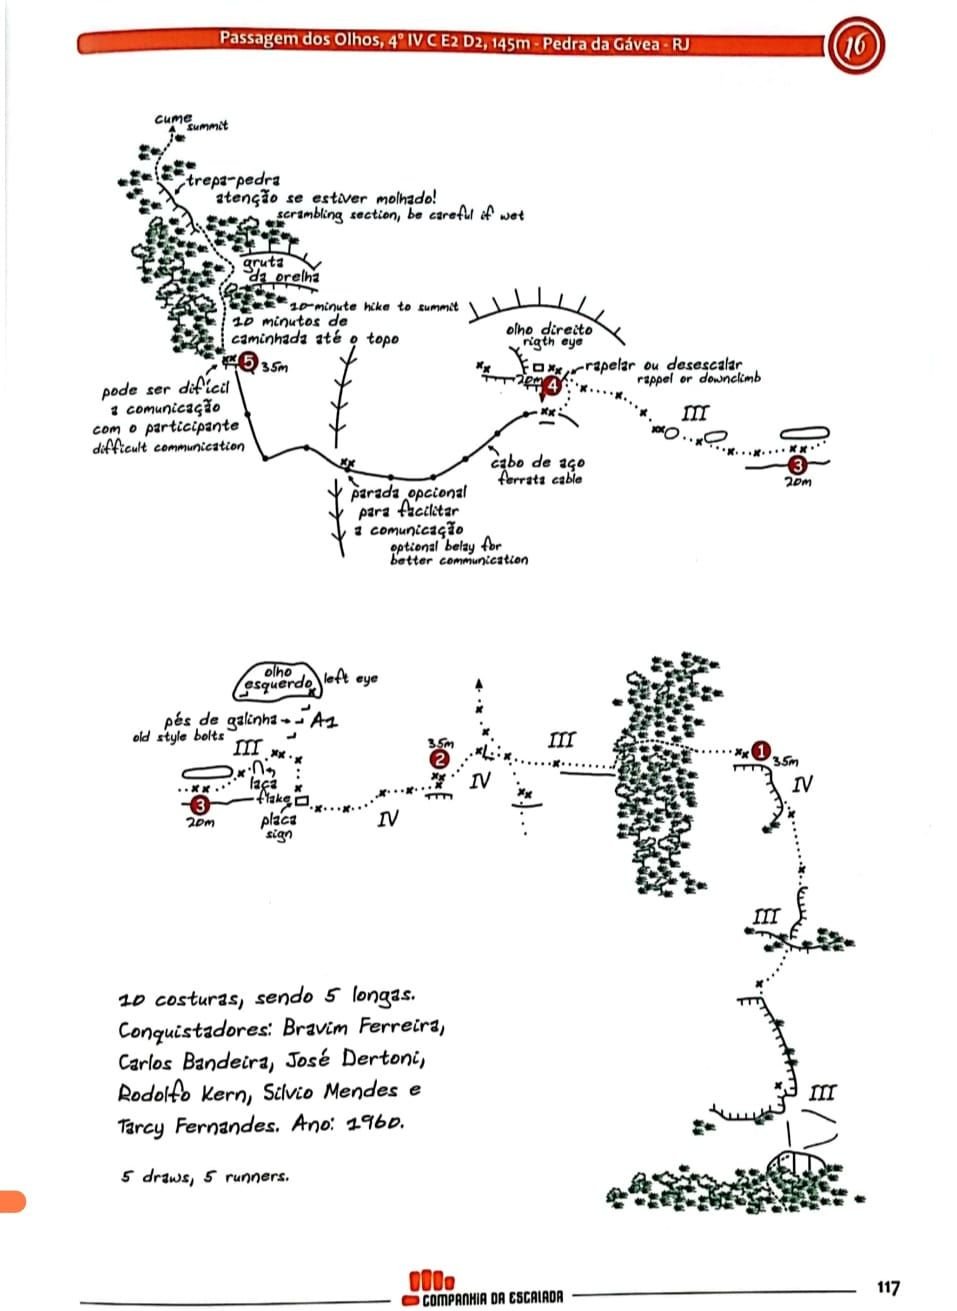 Passagem dos Olhos, 4° IV C E2 D2, 145m - Pedra da Gávea - RJ
16
cume
summit
trepa-pedra
atenção se estiver molhado!
scrambling section, be careful if wet
gruta
da orelha
10-minute hike to summit
10 minutos de
caminhada até o topo
5
35m
pode ser difícil
a comunicação
com o participante
difficult communication
olho direito
rigth eye
rapelar ou desescalar
rappel or downclimb
20m
4
III
3
20m
cabo de aço
ferrata cable
parada opcional
para facilitar
a comunicação
optional belay for
better communication
olho
esquerdo
left eye
pés de galinha
old style bolts
A1
III
laca
flake
3
20m
placa
sign
IV
35m
2
IV
III
1
35m
IV
III
III
10 costuras, sendo 5 longas.
Conquistadores: Bravim Ferreira,
Carlos Bandeira, José Dertoni,
Rodolfo Kern, Silvio Mendes e
Tarcy Fernandes. Ano: 1960.
5 draws, 5 runners.
COMPANHIA DA ESCALADA
117